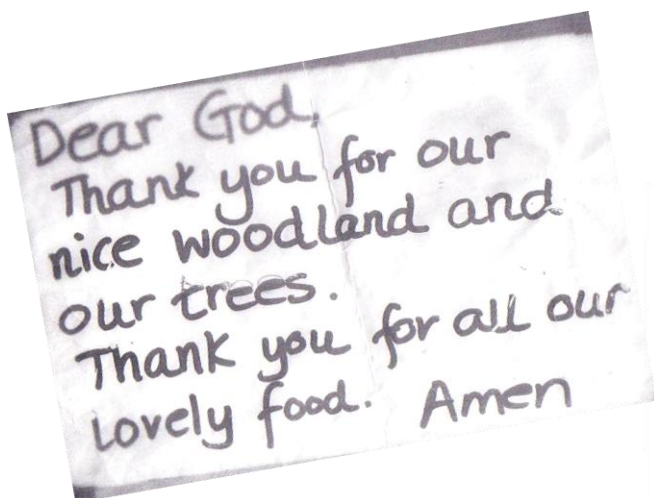 Dear God,
Thank you for our
nice woodland and
our trees.
Thank you for all our
lovely food. Amen